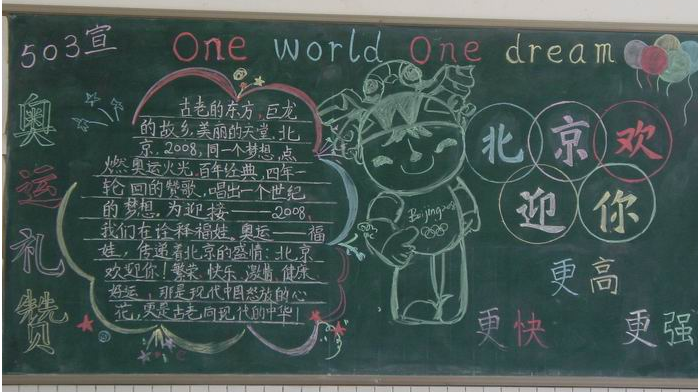 503宣
One world One dream
奥运礼赞
古老的东方,巨龙
的故乡,美丽的天堂,北
京,2008,同一个梦想,点
燃奥运火光,百年经典,四年一
轮回的赞歌,唱出一个世纪
的梦想,为迎接——2008,
我们在诠释福娃,奥运——福
娃,传递着北京的盛情:北京
欢迎你!繁荣、快乐、激情、健康
好运,那是现代中国怒放的心
花,更是古老向现代的中华!
Beijing2008
北京欢
迎你
更高
更快
更强